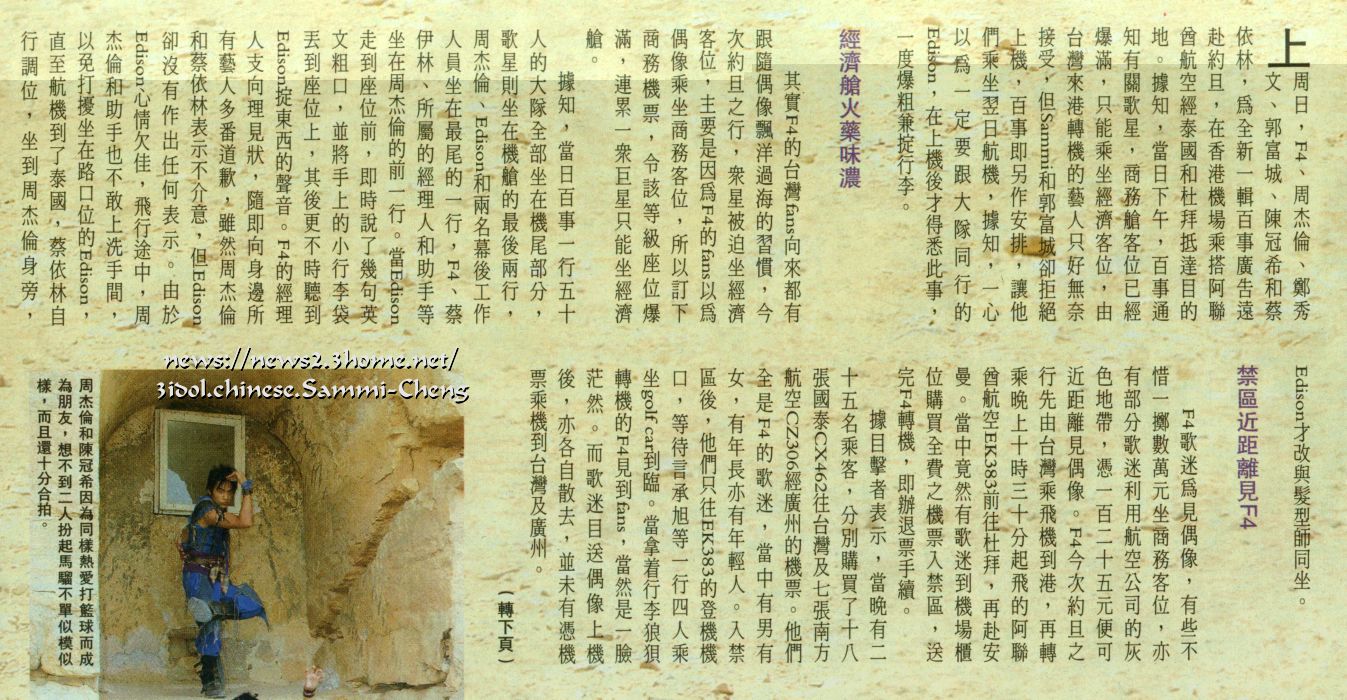 上周日，F4、周杰倫、鄭秀
文、郭富城、陳冠希和蔡
依林，爲全新一輯百事廣告遠
赴約旦，在香港機場乘搭阿聯
酋航空經泰國和杜拜抵達目的
地。據知，當日下午，百事通
知有關歌星，商務艙客位已經
爆滿，只能乘坐經濟客位，由
台灣來港轉機的藝人只好無奈
接受，但Sammi和郭富城卻拒絕
上機，百事即另作安排，讓他
們乘坐翌日航機，據知，一心
以爲一定要跟大隊同行的
Edison，在上機後才得悉此事，
一度爆粗兼掟行李。
經濟艙火藥味濃
其實F4的台灣fans向來都有
跟隨偶像飄洋過海的習慣，今
次約旦之行，衆星被迫坐經濟
客位，主要是因爲F4的fans以爲
偶像乘坐商務客位，所以訂下
商務機票，令該等級座位爆
滿，連累一衆巨星只能坐經濟
艙。
據知，當日百事一行五十
人的大隊全部坐在機尾部分，
歌星則坐在機艙的最後兩行，
周杰倫、Edison和兩名幕後工作
人員坐在最尾的一行，F4、蔡
伊林、所屬的經理人和助手等
坐在周杰倫的前一行。當Edison
走到座位前，即時說了幾句英
文粗口，並將手上的小行李袋
丟到座位上，其後更不時聽到
Edison掟東西的聲音。F4的經理
人支向理見狀，隨即向身邊所
有藝人多番道歉，雖然周杰倫
和蔡依林表示不介意，但Edison
卻沒有作出任何表示。由於
Edison心情欠佳，飛行途中，周
杰倫和助手也不敢上洗手間，
以免打擾坐在路口位的Edison，
直至航機到了泰國，蔡依林自
行調位，坐到周杰倫身旁，
Edison才改與髮型師同坐。
禁區近距離見F4
F4歌迷爲見偶像，有些不
惜一擲數萬元坐商務客位，亦
有部分歌迷利用航空公司的灰
色地帶，憑一百二十五元便可
近距離見偶像。F4今次約旦之
行先由台灣乘飛機到港，再轉
乘晚上十時三十分起飛的阿聯
酋航空EK383前往杜拜，再赴安
曼。當中竟然有歌迷到機場櫃
位購買全費之機票入禁區，送
完F4轉機，即辦退票手續。
據目擊者表示，當晚有二
十五名乘客，分別購買了十八
張國泰CX462往台灣及七張南方
航空CZ306經廣州的機票。他們
全是F4的歌迷，當中有男有
女，有年長亦有年輕人。入禁
區後，他們只往EK383的登機機
口，等待言承旭等一行四人乘
坐golf car到臨。當拿着行李狼狽
轉機的F4見到fans，當然是一臉
茫然。而歌迷目送偶像上機
後，亦各自散去，並未有憑機
票乘機到台灣及廣州。
（轉下頁）
news://news2.3home.net/
3idol.chinese.Sammi-Cheng
周杰倫和陳冠希因為同樣熱愛打籃球而成
為朋友，想不到二人扮起馬騮不單似模似
樣，而且還十分合拍。